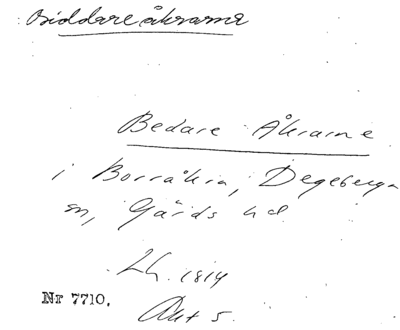 Biddareåkrarna
Bedare Åkrarne
i Borråkra, Degeberga
sn, Gärds hd
Lh. 1814
Nr 7710.
Akt 5.